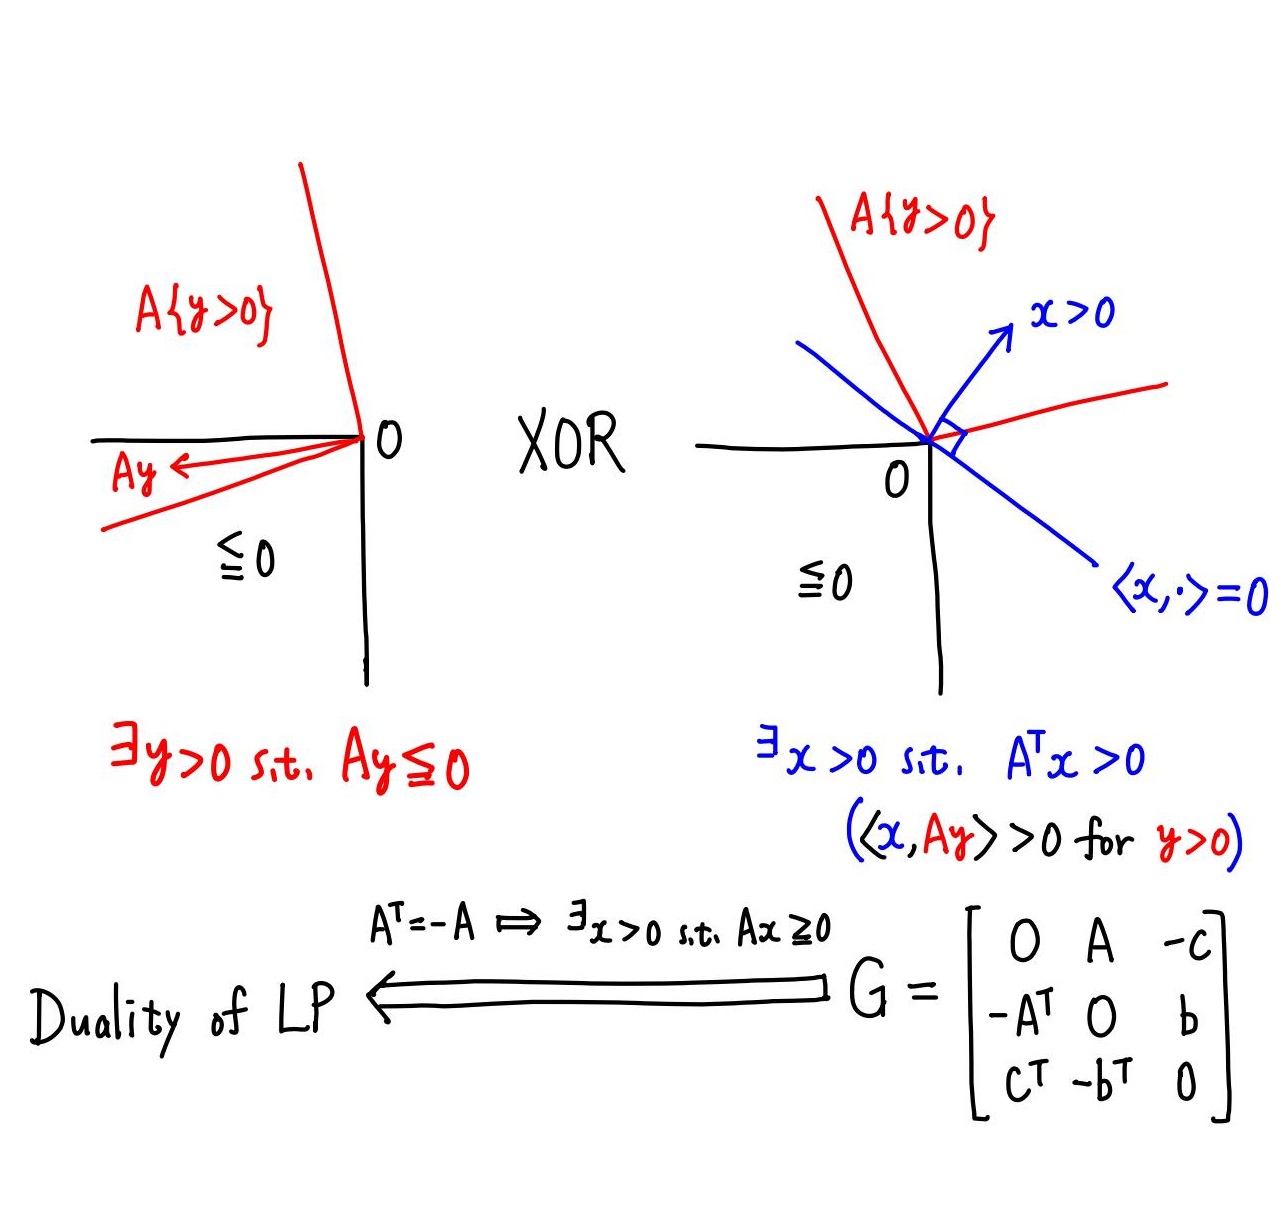 A{y>0}
Ay
0
≦0
XOR
A{y>0}
x>0
0
≦0
⟨x,·⟩=0
∃y>0 s.t. Ay≦0
∃x>0 s.t. Aᵀx>0
(⟨x,Ay⟩>0 for y>0)
Aᵀ=-A ⟹ ∃x>0 s.t. Ax≧0
Duality of LP ⟸ G = [
0 A -c
-Aᵀ 0 b
cᵀ -bᵀ 0
]